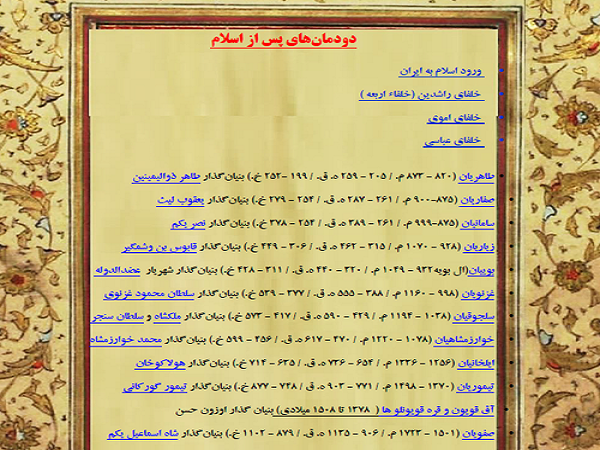 دودمان‌های پس از اسلام
ورود اسلام به ایران
خلفای راشدین (خلفاء اربعه )
خلفای اموی
خلفای عباسی
طاهریان (۸۲۰ - ۸۷۳ م. / ۲۰۵ - ۲۵۹ ه. ق. / ۱۹۹ -۲۵۲ خ.) بنیان‌گذار طاهر ذوالیمینین
صفاریان (۸۷۵-۹۰۰ م. / ۲۶۱ - ۲۸۷ ه. ق. / ۲۵۴ - ۲۷۹ خ.) بنیان‌گذار یعقوب لیث
سامانیان (۸۷۵-۹۹۹ م. / ۲۶۱ - ۳۸۹ ه. ق. / ۲۵۴ - ۳۷۸ خ.) بنیان‌گذار نصر یکم
زیاریان (۹۲۸ - ۱۰۷۰ م. / ۳۱۵ - ۴۶۲ ه. ق. / ۳۰۶ - ۴۴۹ خ.) بنیان‌گذار قابوس بن وشمگیر
بوییان(آل بویه۹۳۲ - ۱۰۴۹ م. / ۳۲۰ - ۴۴۰ ه. ق. / ۳۱۱ - ۴۲۸ خ.) بنیان‌گذار شهریار عضدالدوله
غزنویان (۹۹۸ - ۱۱۶۰ م. / ۳۸۸ - ۵۵۵ ه. ق. / ۳۷۷ - ۵۳۹ خ.) بنیان‌گذار سلطان محمود غزنوی
سلجوقیان (۱۰۳۸ - ۱۱۹۴ م. / ۴۲۹ - ۵۹۰ ه. ق. / ۴۱۷ - ۵۷۳ خ.) بنیان‌گذار ملکشاه و سلطان سنجر
خوارزمشاهیان (۱۰۷۸ - ۱۲۲۰ م. / ۴۷۰ - ۶۱۷ ه. ق. / ۴۵۶ - ۵۹۹ خ.) بنیان‌گذار محمد خوارزمشاه
ایلخانیان (۱۲۵۶ - ۱۳۳۶ م. / ۶۵۴ - ۷۳۶ ه. ق. / ۶۳۵ - ۷۱۴ خ.) بنیان‌گذار هولاکوخان
تیموریان (۱۳۷۰ - ۱۴۹۸ م. / ۷۷۱ - ۹۰۳ ه. ق. / ۷۴۸ - ۸۷۷ خ.) بنیان‌گذار تیمور گورکانی
آق قویون و قره قویونلو ها ( ۱۳۷۸ تا ۱۵۰۸ میلادی) بنیان گذار اوزون حسن
صفویان (۱۵۰۱ - ۱۷۲۳ م. / ۹۰۶ - ۱۱۳۵ ه. ق. / ۸۷۹ - ۱۱۰۲ خ.) بنیان‌گذار شاه اسماعیل یکم